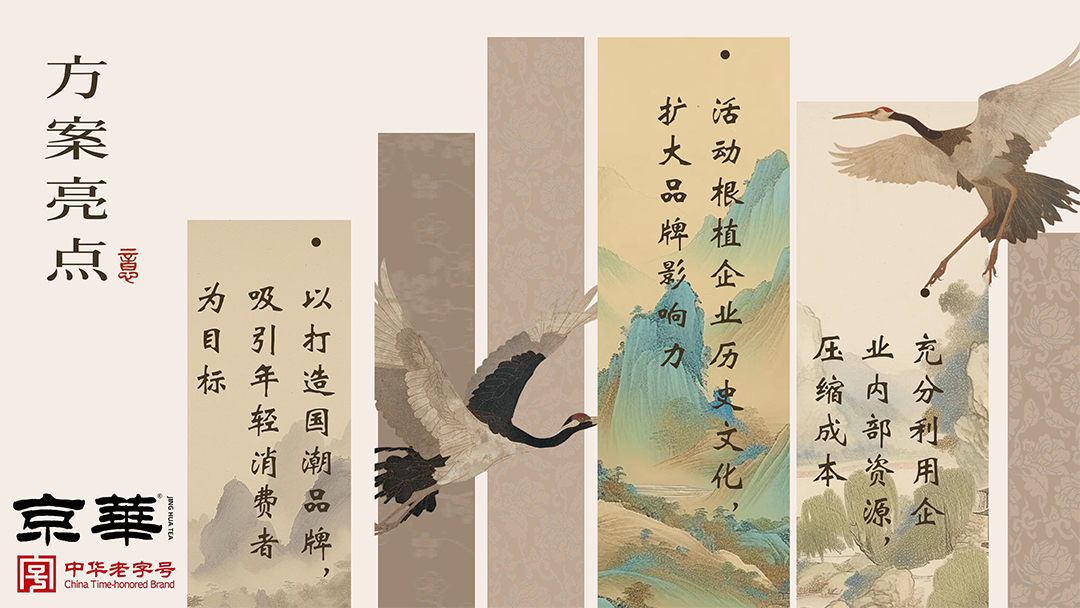 方案亮点
以打造国潮品牌，
吸引年轻消费者
为目标
活动根植企业历史文化，
扩大品牌影响力
充分利用企
业内部资源，
压缩成本
京華®
JING HUA TEA
中华老字号
China Time-honored Brand